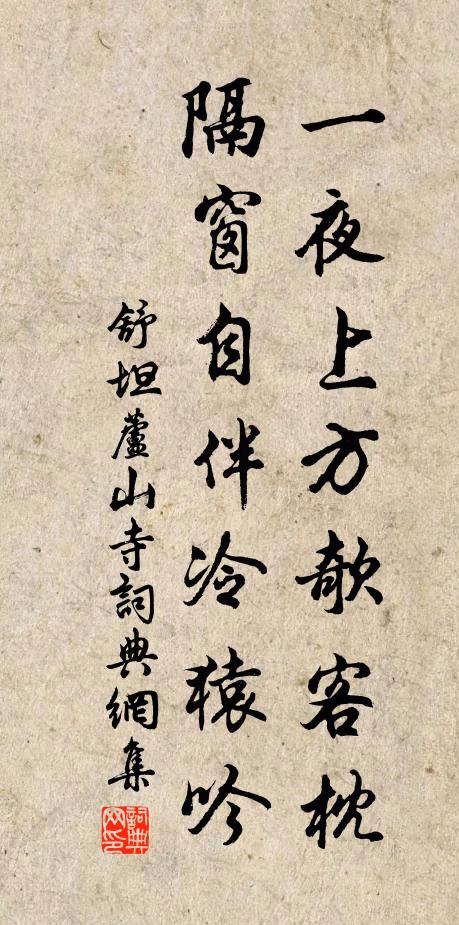 一夜上方欹客枕
隔窗自伴冷猿吟
舒坦蘆山寺詞典網集
詞典網印